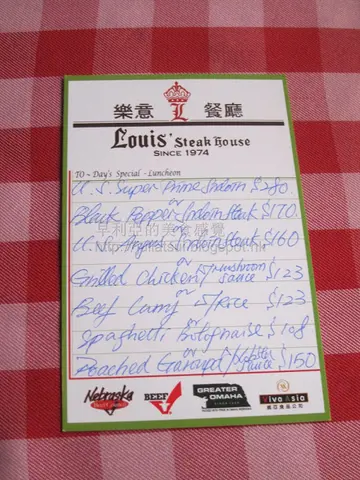 樂意 L 餐廳
Louis' Steak house
SINCE 1974
TO~Day's Special - Luncheon
U.S. Super Prime Sirloin $280
or
Black Pepper Sirloin Steak $170
or
U.S. Angus Sirloin Steak $160
or
Grilled Chicken w/ mushroom sauce $123
or
Beef Curry w/ Rice $123
or
Spaghetti Bolognaise $108
or
Poached Garoupa w/ Lobster sauce $150
早利亞的美食感覺
Nebraska
BEEF
GREATER OMAHA
Viva Asia